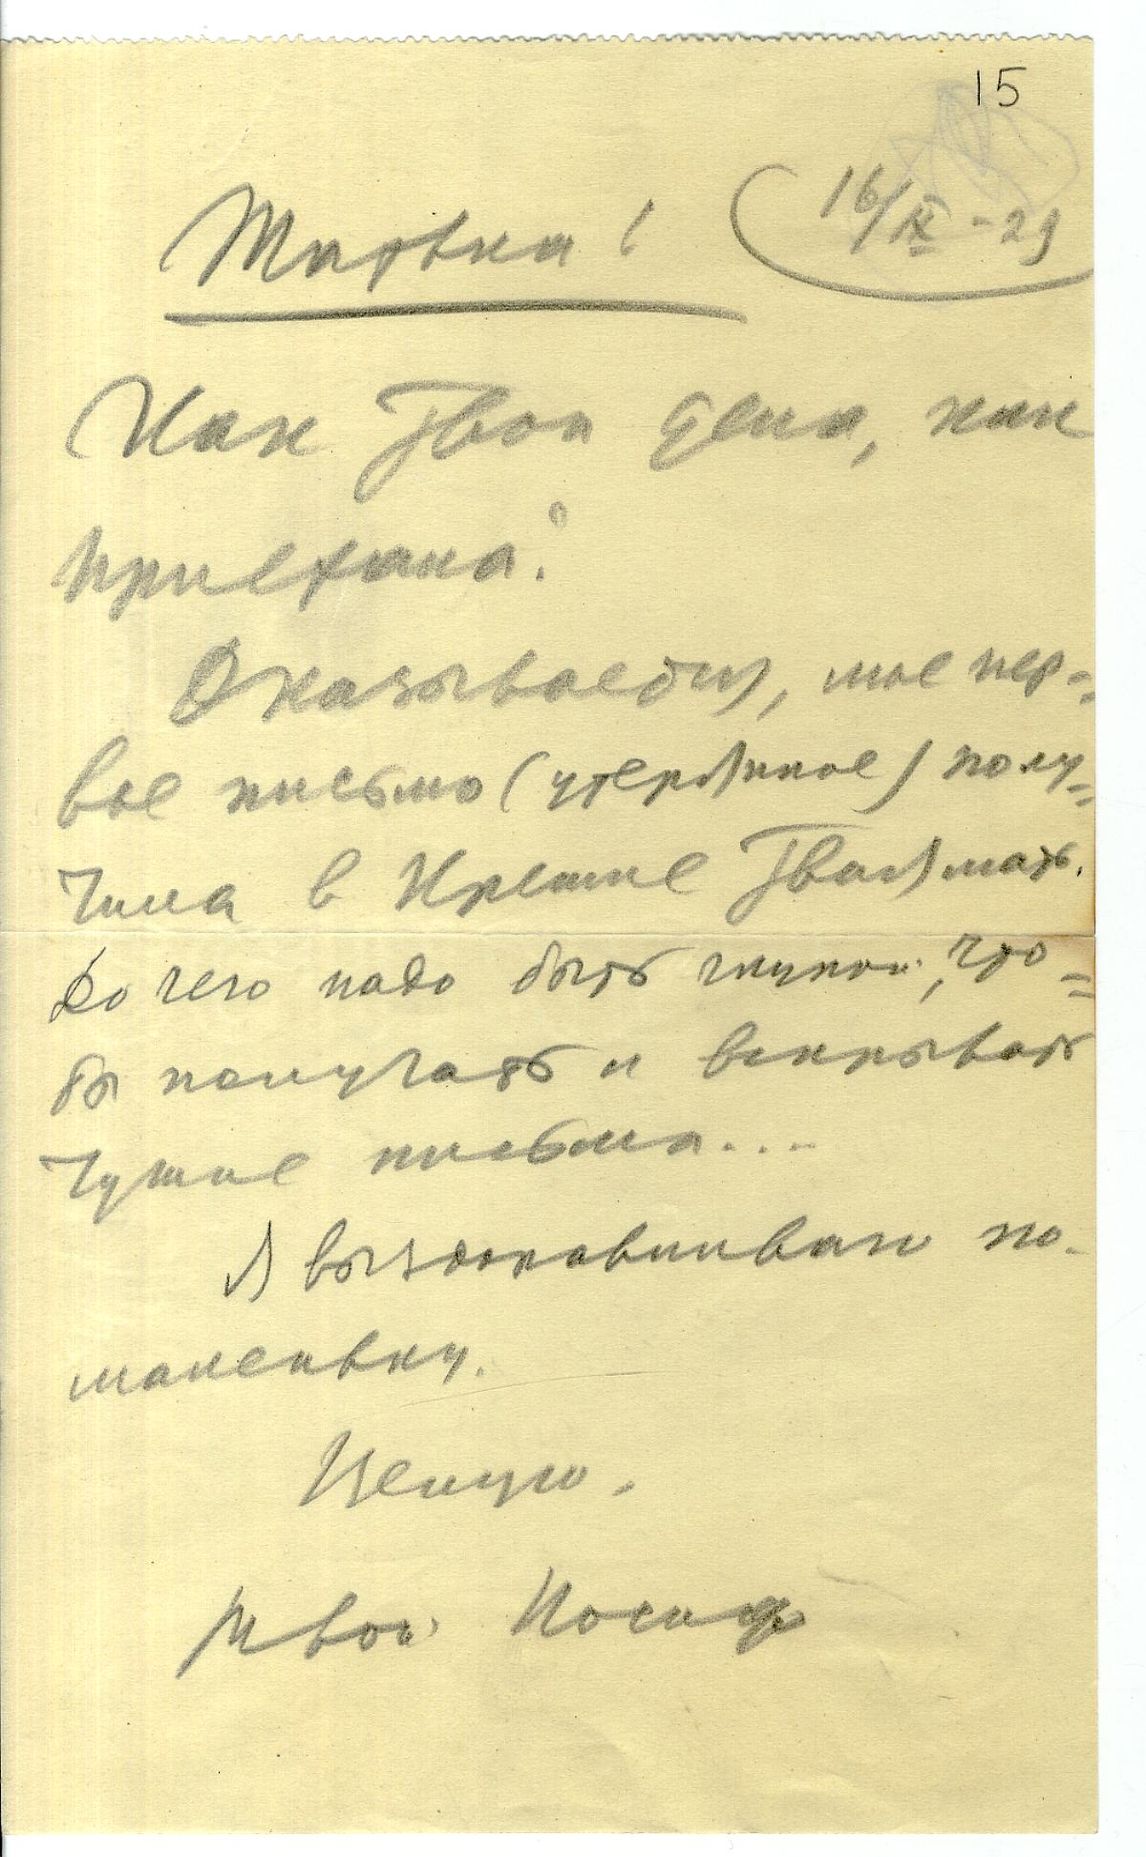 15
16/IX-29
Татька!
Как твои дела, как
приехала?
Оказывается, мое пер-
вое письмо (утерянное) полу-
чила в Кремле твоя мать.
До чего надо быть глупой, что-
бы получать и вскрывать
чужие письма...
Я выздоравливаю по-
маленьку.
Целую.
Твой Иосиф